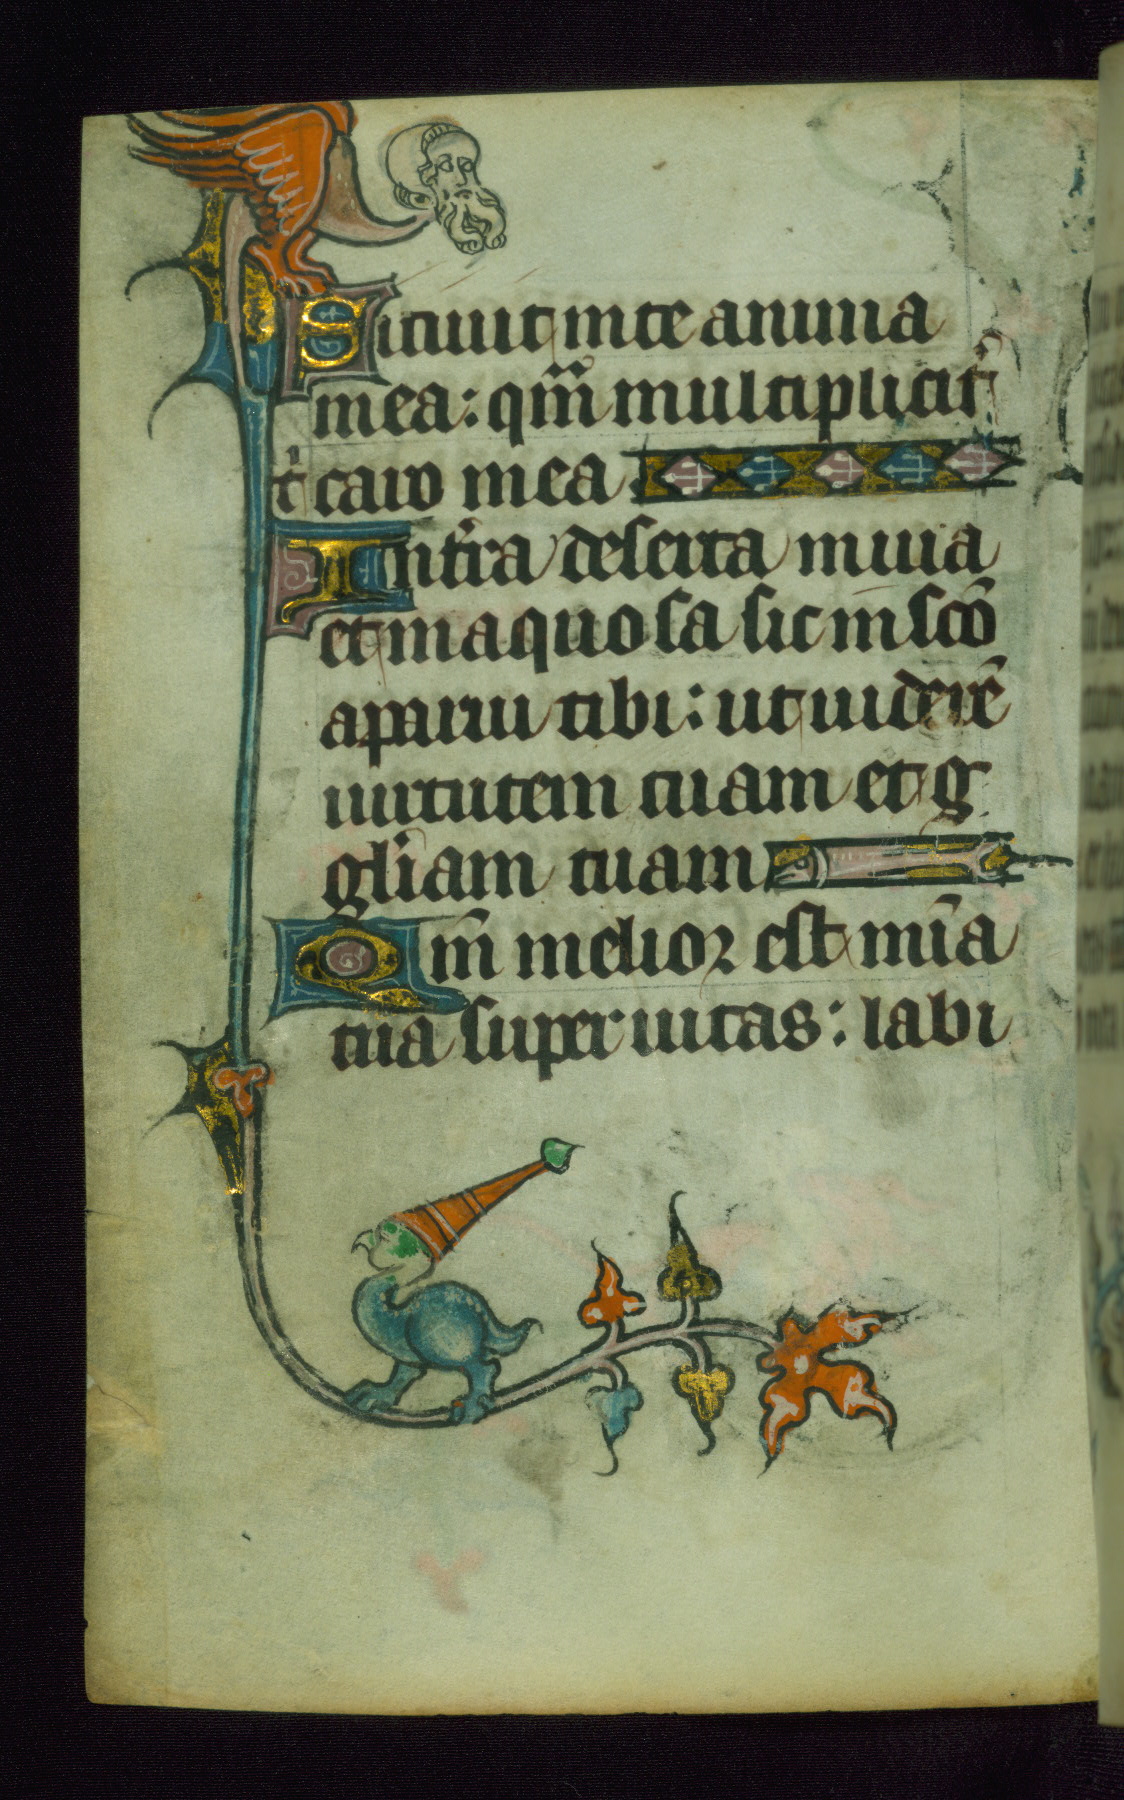 Sitiuit in te anima
mea: qm̄ multiplicit̉
t̉ caro mea
In tr̉ra deserta in uia
et in aquosa sic in sc̄o
aparui tibi: ut uiderē
uirtutem tuam et g
gl̉iam tuam
Qm̄ melior est mi̅a
tua super uitas: labi